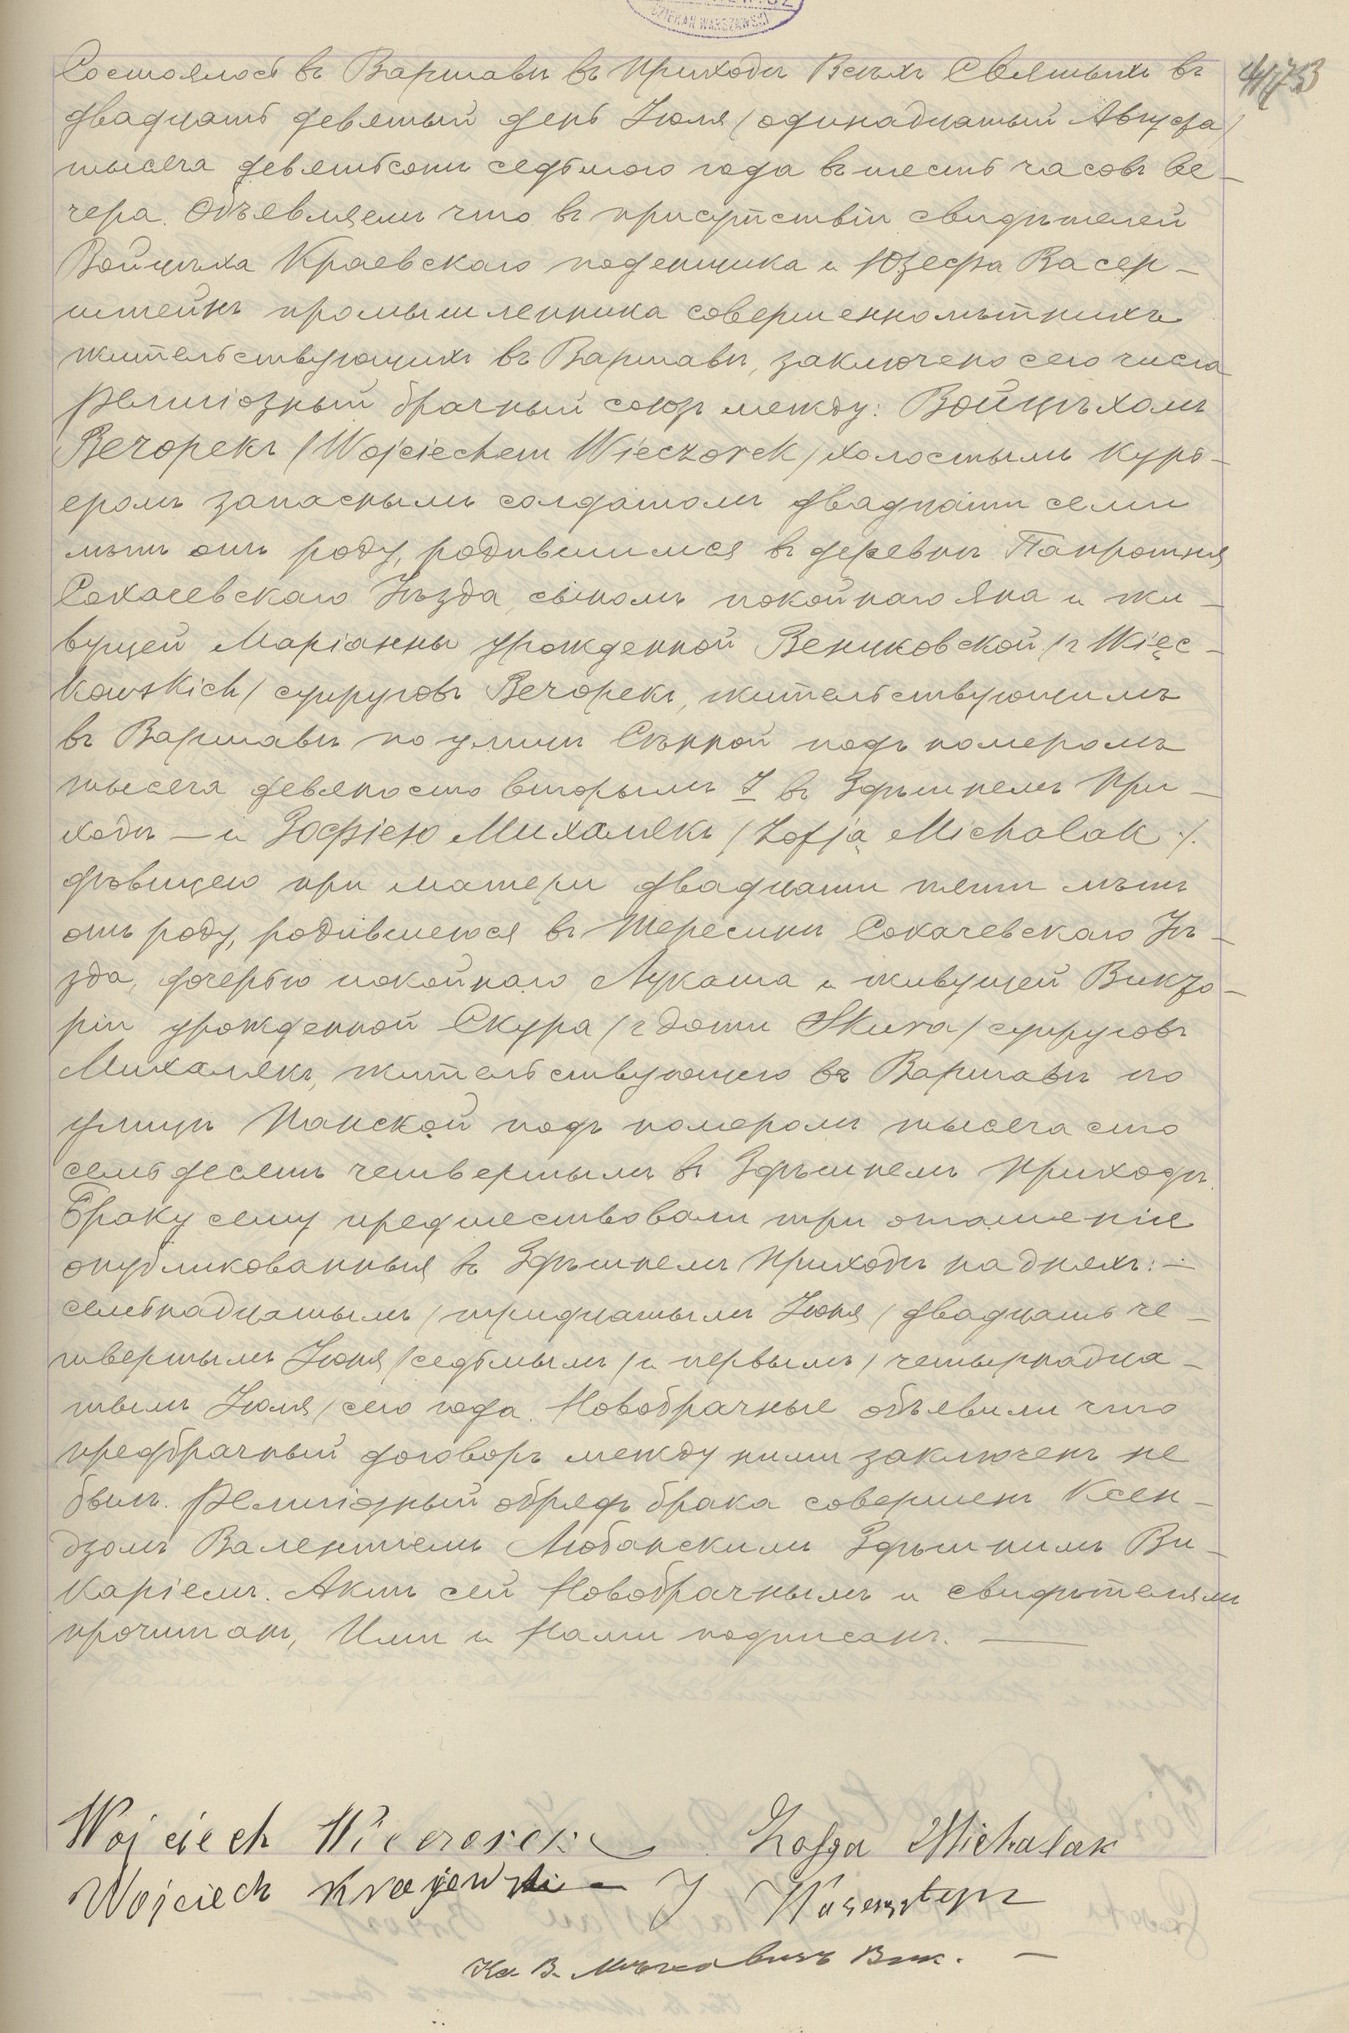 DZIEKAN WARSZAWSKI
473
Состоялось въ Варшавѣ въ приходѣ Всѣхъ Святыхъ въ
двадцать девятый день Іюля /одинадцатый Августа/
тысяча девятьсотъ седьмого года въ шесть часовъ ве-
чера. Объявляемъ что въ присутствіи свидѣтелей
Войцѣха Краевскаго поденщика и Юзефа Васер-
штейнъ промышленника совершеннолѣтнихъ
жительствующихъ въ Варшавѣ, заключено сего числа
религіозный брачный союзъ между: Войцѣхомъ
Вечорекъ /Wojciechem Wieczorek/ холостымъ курь-
еромъ запаснымъ солдатомъ двадцати семи
лѣтъ отъ роду, родившимся въ деревнѣ Папротня
Сохачевскаго Уѣзда, сыномъ покойнаго Яна и жи-
вущей Маріанны урожденной Венцковской /z Więc-
kowskich/ супруговъ Вечорекъ, жительствующимъ
въ Варшавѣ по улицѣ Сѣнной подъ номеромъ
тысяча девяносто вторымъ J въ Здѣшнемъ при-
ходѣ — и Зофіею Михалякъ /Zofją Michalak/.
дѣвицею при матери двадцати пяти лѣтъ
отъ роду, родившеюся въ Тересинѣ Сохачевскаго Уѣ-
зда, дочерью покойнаго Лукаша и живущей Викто-
ріи урожденной Скура /z domu Skura/ супруговъ
Михалякъ, жительствующею въ Варшавѣ по
улицѣ Панской подъ номеромъ тысяча сто
семьдесятъ четвертымъ въ Здѣшнемъ приходѣ.
Браку сему предшествовали три оглашенія
опубликованныя въ Здѣшнемъ приходѣ на дняхъ: —
семьнадцатымъ /тридцатымъ Іюня/ двадцать че-
твертымъ Іюня /седьмымъ/ и первымъ /четырнадца-
тымъ Іюля/ сего года. Новобрачные объявили что
предбрачный договоръ между ними заключенъ не
былъ. Религіозный обрядъ брака совершенъ Ксен-
дзомъ Валентіемъ Любанскимъ Здѣшнимъ Ви-
каріемъ. Актъ сей Новобрачнымъ и свидѣтелямъ
прочитанъ, Ими и Нами подписанъ. —
Wojciech Wieczorek Zofja Michalak
Wojciech Krajewski — J Waserstejn
Кс. В. Вик. —